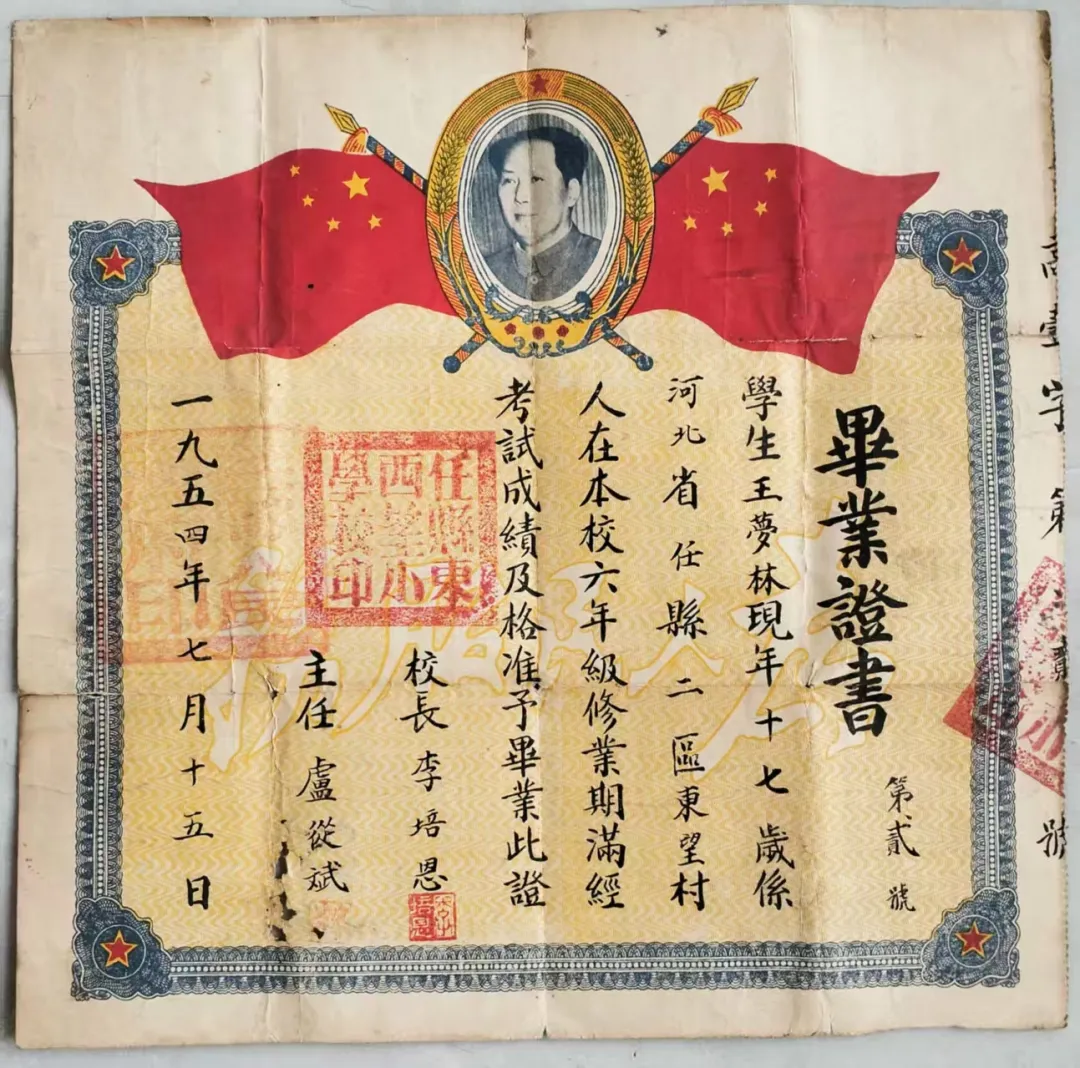 高壹字第貳號
畢業證書
第貳號
學生王夢林現年十七歲係
河北省任縣二區東望村
人在本校六年級修業期滿經
考試成績及格准予畢業此證
校長李培恩
李培恩
主任盧從斌
任縣東
西小
學校印
一九五四年七月十五日